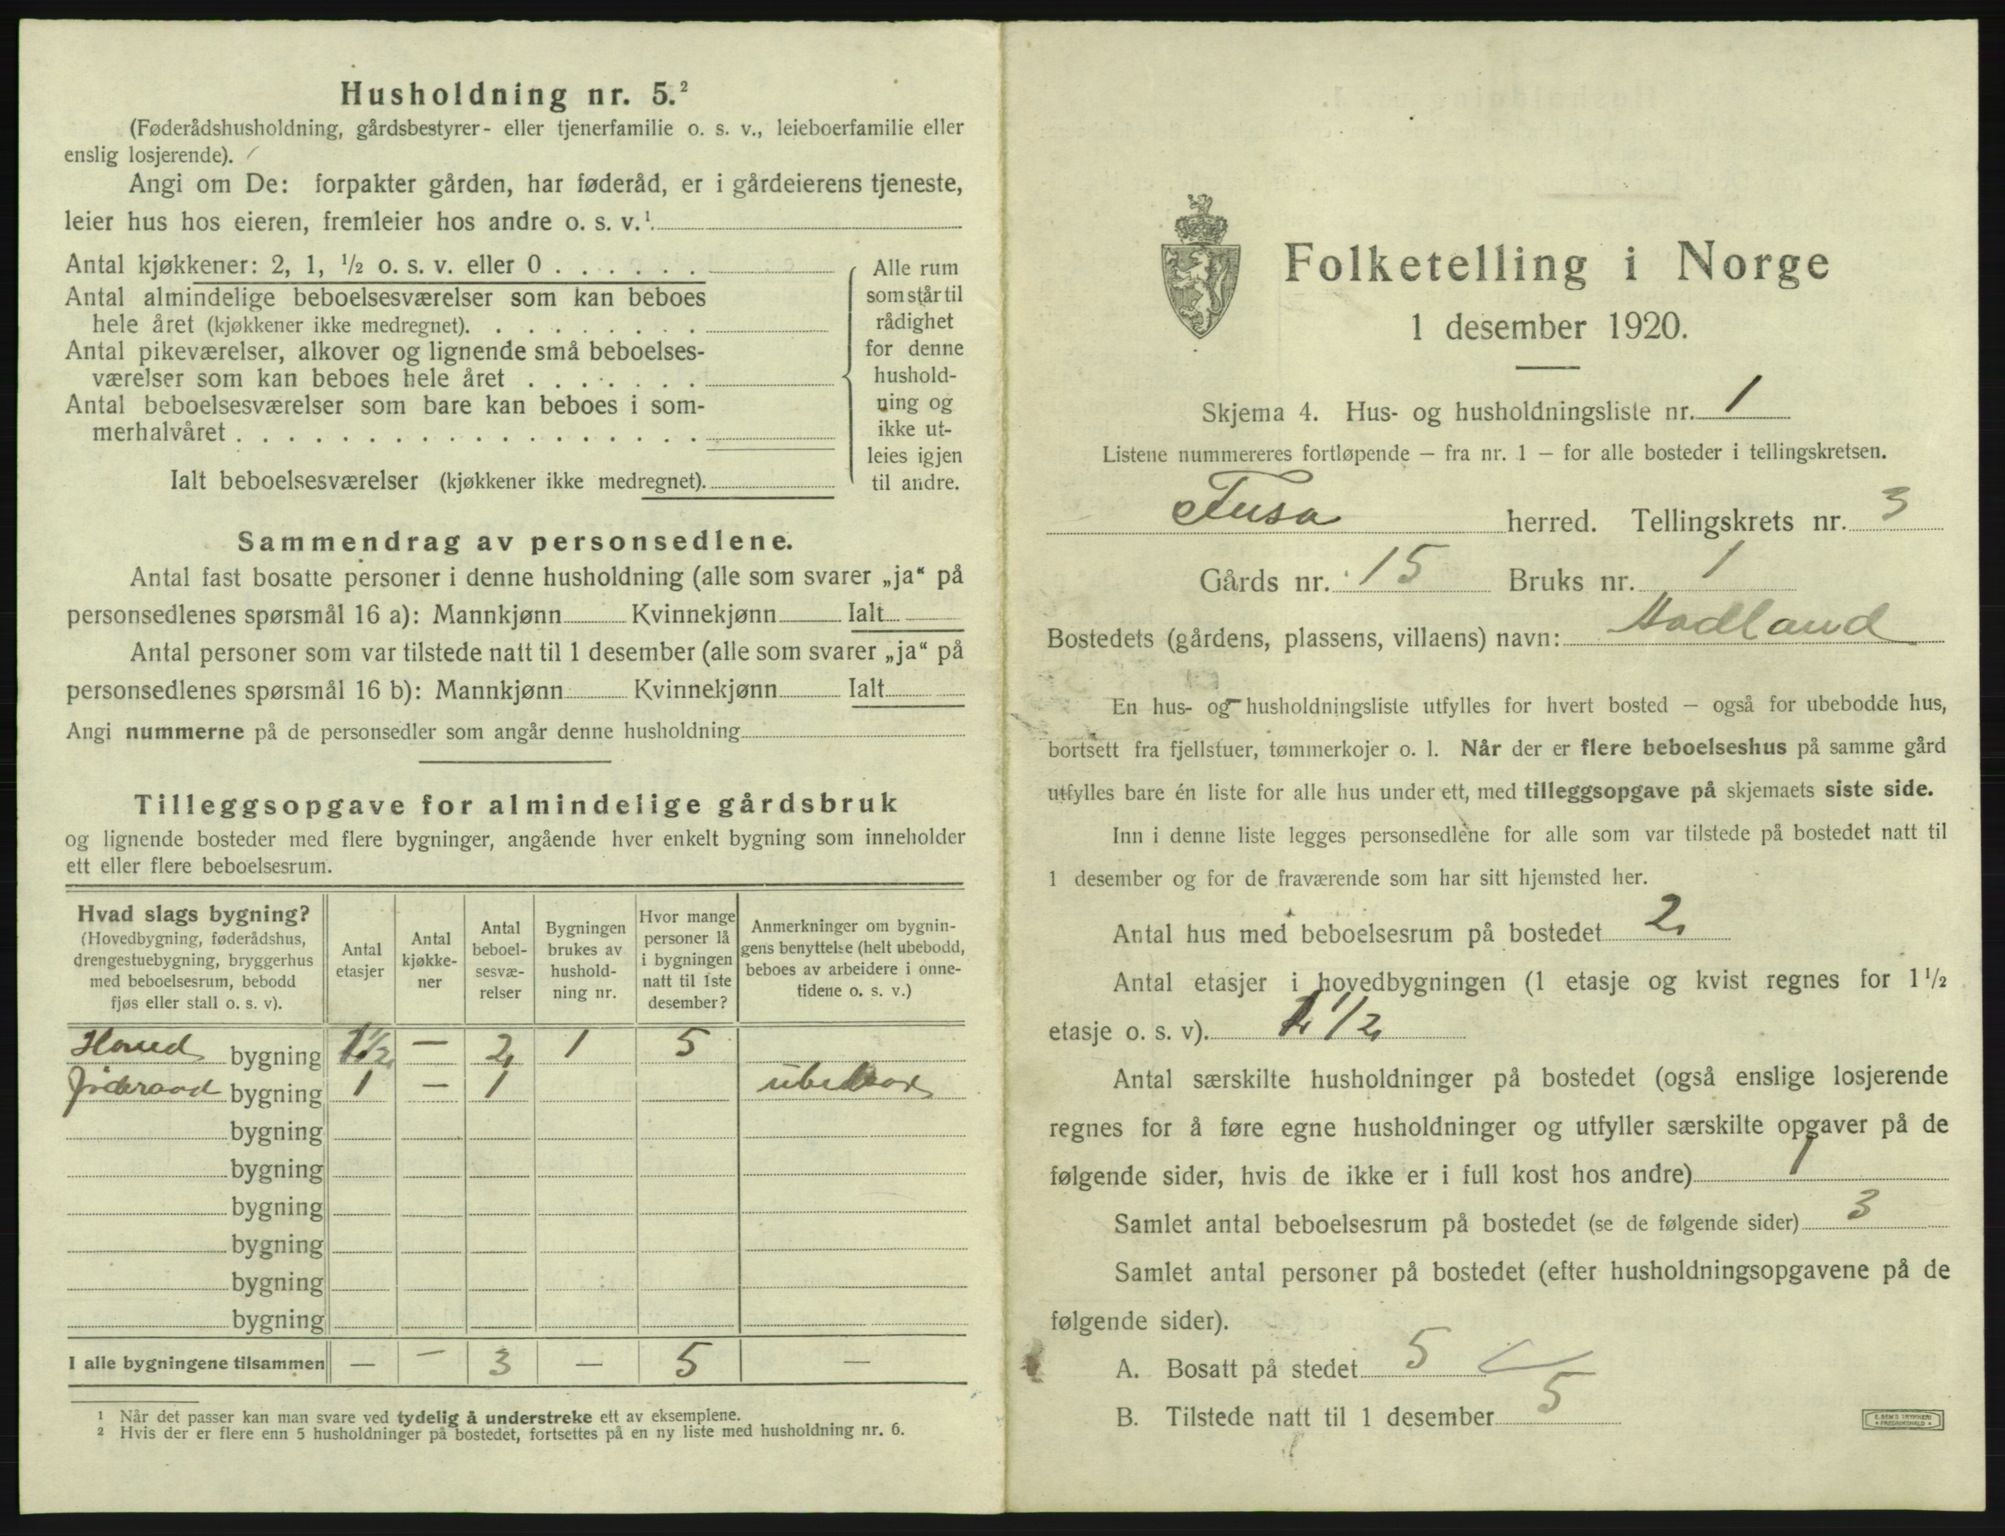 Husholdning nr. 5.²
(Føderådshusholdning, gårdsbestyrer- eller tjenerfamilie o. s. v., leieboerfamilie eller
enslig losjerende).
Angi om De: forpakter gården, har føderåd, er i gårdeierens tjeneste,
leier hus hos eieren, fremleier hos andre o. s. v.¹
Antal kjøkkener: 2, 1, ½ o. s. v. eller 0 . . . . . .
Antal almindelige beboelsesværelser som kan beboes
hele året (kjøkkener ikke medregnet). . . . . . . . .
Antal pikeværelser, alkover og lignende små beboelses-
værelser som kan beboes hele året . . . . . . .
Antal beboelsesværelser som bare kan beboes i som-
merhalvåret . . . . . . . . . . . . . . . . . .
Ialt beboelsesværelser (kjøkkener ikke medregnet).
Alle rum
som står til
rådighet
for denne
hushold-
ning og
ikke ut-
leies igjen
til andre.
Sammendrag av personsedlene.
Antal fast bosatte personer i denne husholdning (alle som svarer „ja“ på
personsedlenes spørsmål 16 a): Mannkjønn Kvinnekjønn Ialt
Antal personer som var tilstede natt til 1 desember (alle som svarer „ja“ på
personsedlenes spørsmål 16 b): Mannkjønn Kvinnekjønn Ialt
Angi nummerne på de personsedler som angår denne husholdning
Tilleggsopgave for almindelige gårdsbruk
og lignende bosteder med flere bygninger, angående hver enkelt bygning som inneholder
ett eller flere beboelsesrum.
Hvad slags bygning?
(Hovedbygning, føderådshus,
drengestuebygning, bryggerhus
med beboelsesrum, bebodd
fjøs eller stall o. s. v).
Antal
etasjer
Antal
kjøkke-
ner
Antal
beboel-
sesvæ-
relser
Bygningen
brukes av
hushold-
ning nr.
Hvor mange
personer lå
i bygningen
natt til 1ste
desember?
Anmerkninger om bygnin-
gens benyttelse (helt ubebodd,
beboes av arbeidere i onne-
tidene o. s. v.)
Hoved bygning 1½ — 2 1 5
Føderaad bygning 1 — 1 ubeboet
bygning
bygning
bygning
bygning
bygning
bygning
I alle bygningene tilsammen — — 3 — 5 —
¹ Når det passer kan man svare ved tydelig å understreke ett av eksemplene.
² Hvis der er flere enn 5 husholdninger på bostedet, fortsettes på en ny liste med husholdning nr. 6.
Folketelling i Norge
1 desember 1920.
Skjema 4. Hus- og husholdningsliste nr. 1
Listene nummereres fortløpende — fra nr. 1 — for alle bosteder i tellingskretsen.
Fusa herred. Tellingskrets nr. 3
Gårds nr. 15 Bruks nr. 1
Bostedets (gårdens, plassens, villaens) navn: Hadland
En hus- og husholdningsliste utfylles for hvert bosted — også for ubebodde hus,
bortsett fra fjellstuer, tømmerkojer o. l. Når der er flere beboelseshus på samme gård
utfylles bare én liste for alle hus under ett, med tilleggsopgave på skjemaets siste side.
Inn i denne liste legges personsedlene for alle som var tilstede på bostedet natt til
1 desember og for de fraværende som har sitt hjemsted her.
Antal hus med beboelsesrum på bostedet 2
Antal etasjer i hovedbygningen (1 etasje og kvist regnes for 1½
etasje o. s. v). 1½
Antal særskilte husholdninger på bostedet (også enslige losjerende
regnes for å føre egne husholdninger og utfyller særskilte opgaver på de
følgende sider, hvis de ikke er i full kost hos andre) 1
Samlet antal beboelsesrum på bostedet (se de følgende sider) 3
Samlet antal personer på bostedet (efter husholdningsopgavene på de
følgende sider).
A. Bosatt på stedet 5
B. Tilstede natt til 1 desember 5